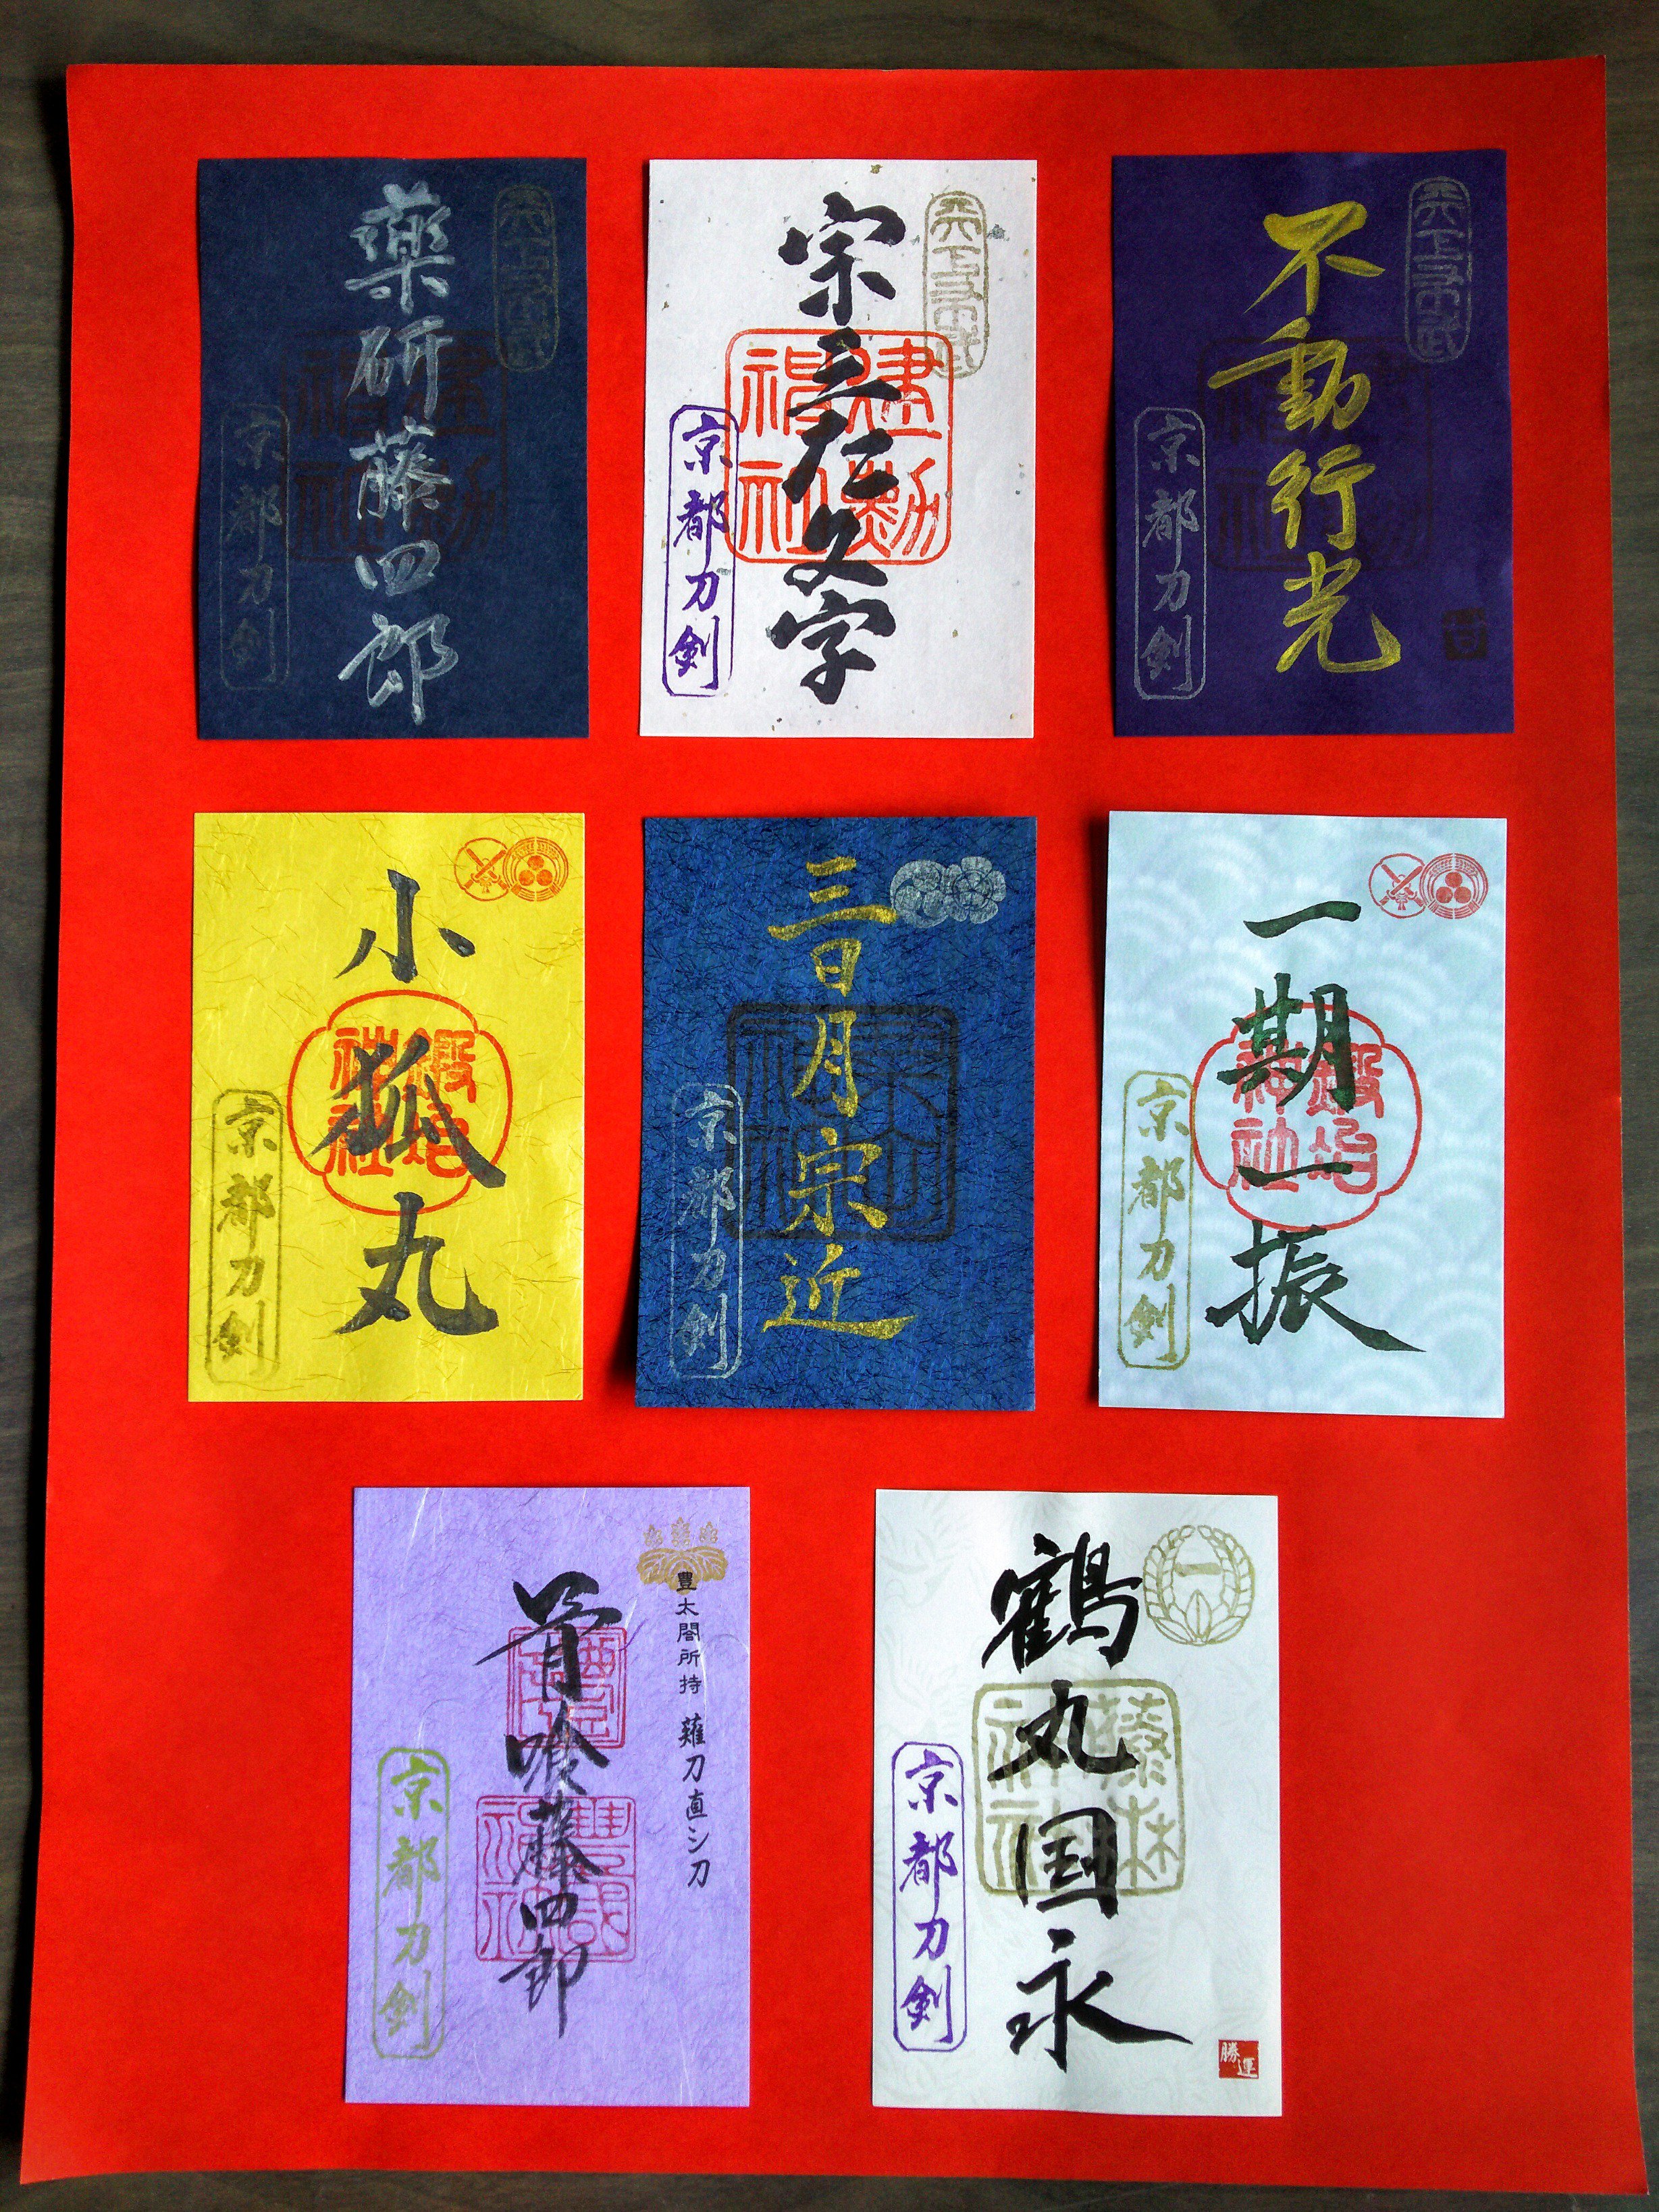 天下布武
薬研藤四郎
建勲神社
京都刀剣
天下布武
宗三左文字
建勲神社
京都刀剣
天下布武
不動行光
建勲神社
京都刀剣
小狐丸
鍛冶神社
京都刀剣
三日月宗近
粟田神社
京都刀剣
一期一振
鍛冶神社
京都刀剣
豊太閤所持 薙刀直シ刀
骨喰藤四郎
豊国神社
京都刀剣
一
鶴丸国永
藤森神社
京都刀剣
勝運